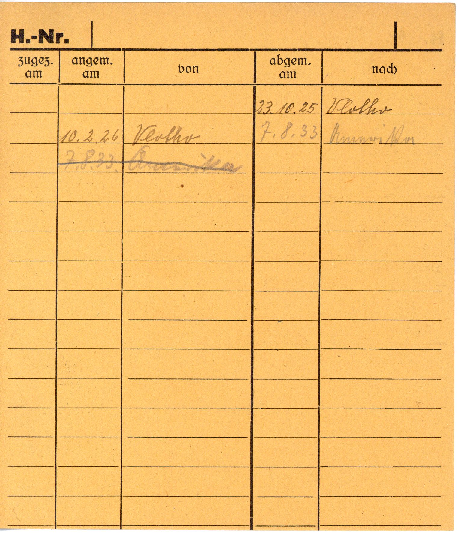 H.-Nr.
zugez. am angem. am von abgem. am nach
23.10.25 Vlotho
10.2.26 Vlotho 7.8.33 Amerika
7.8.33. Amerika